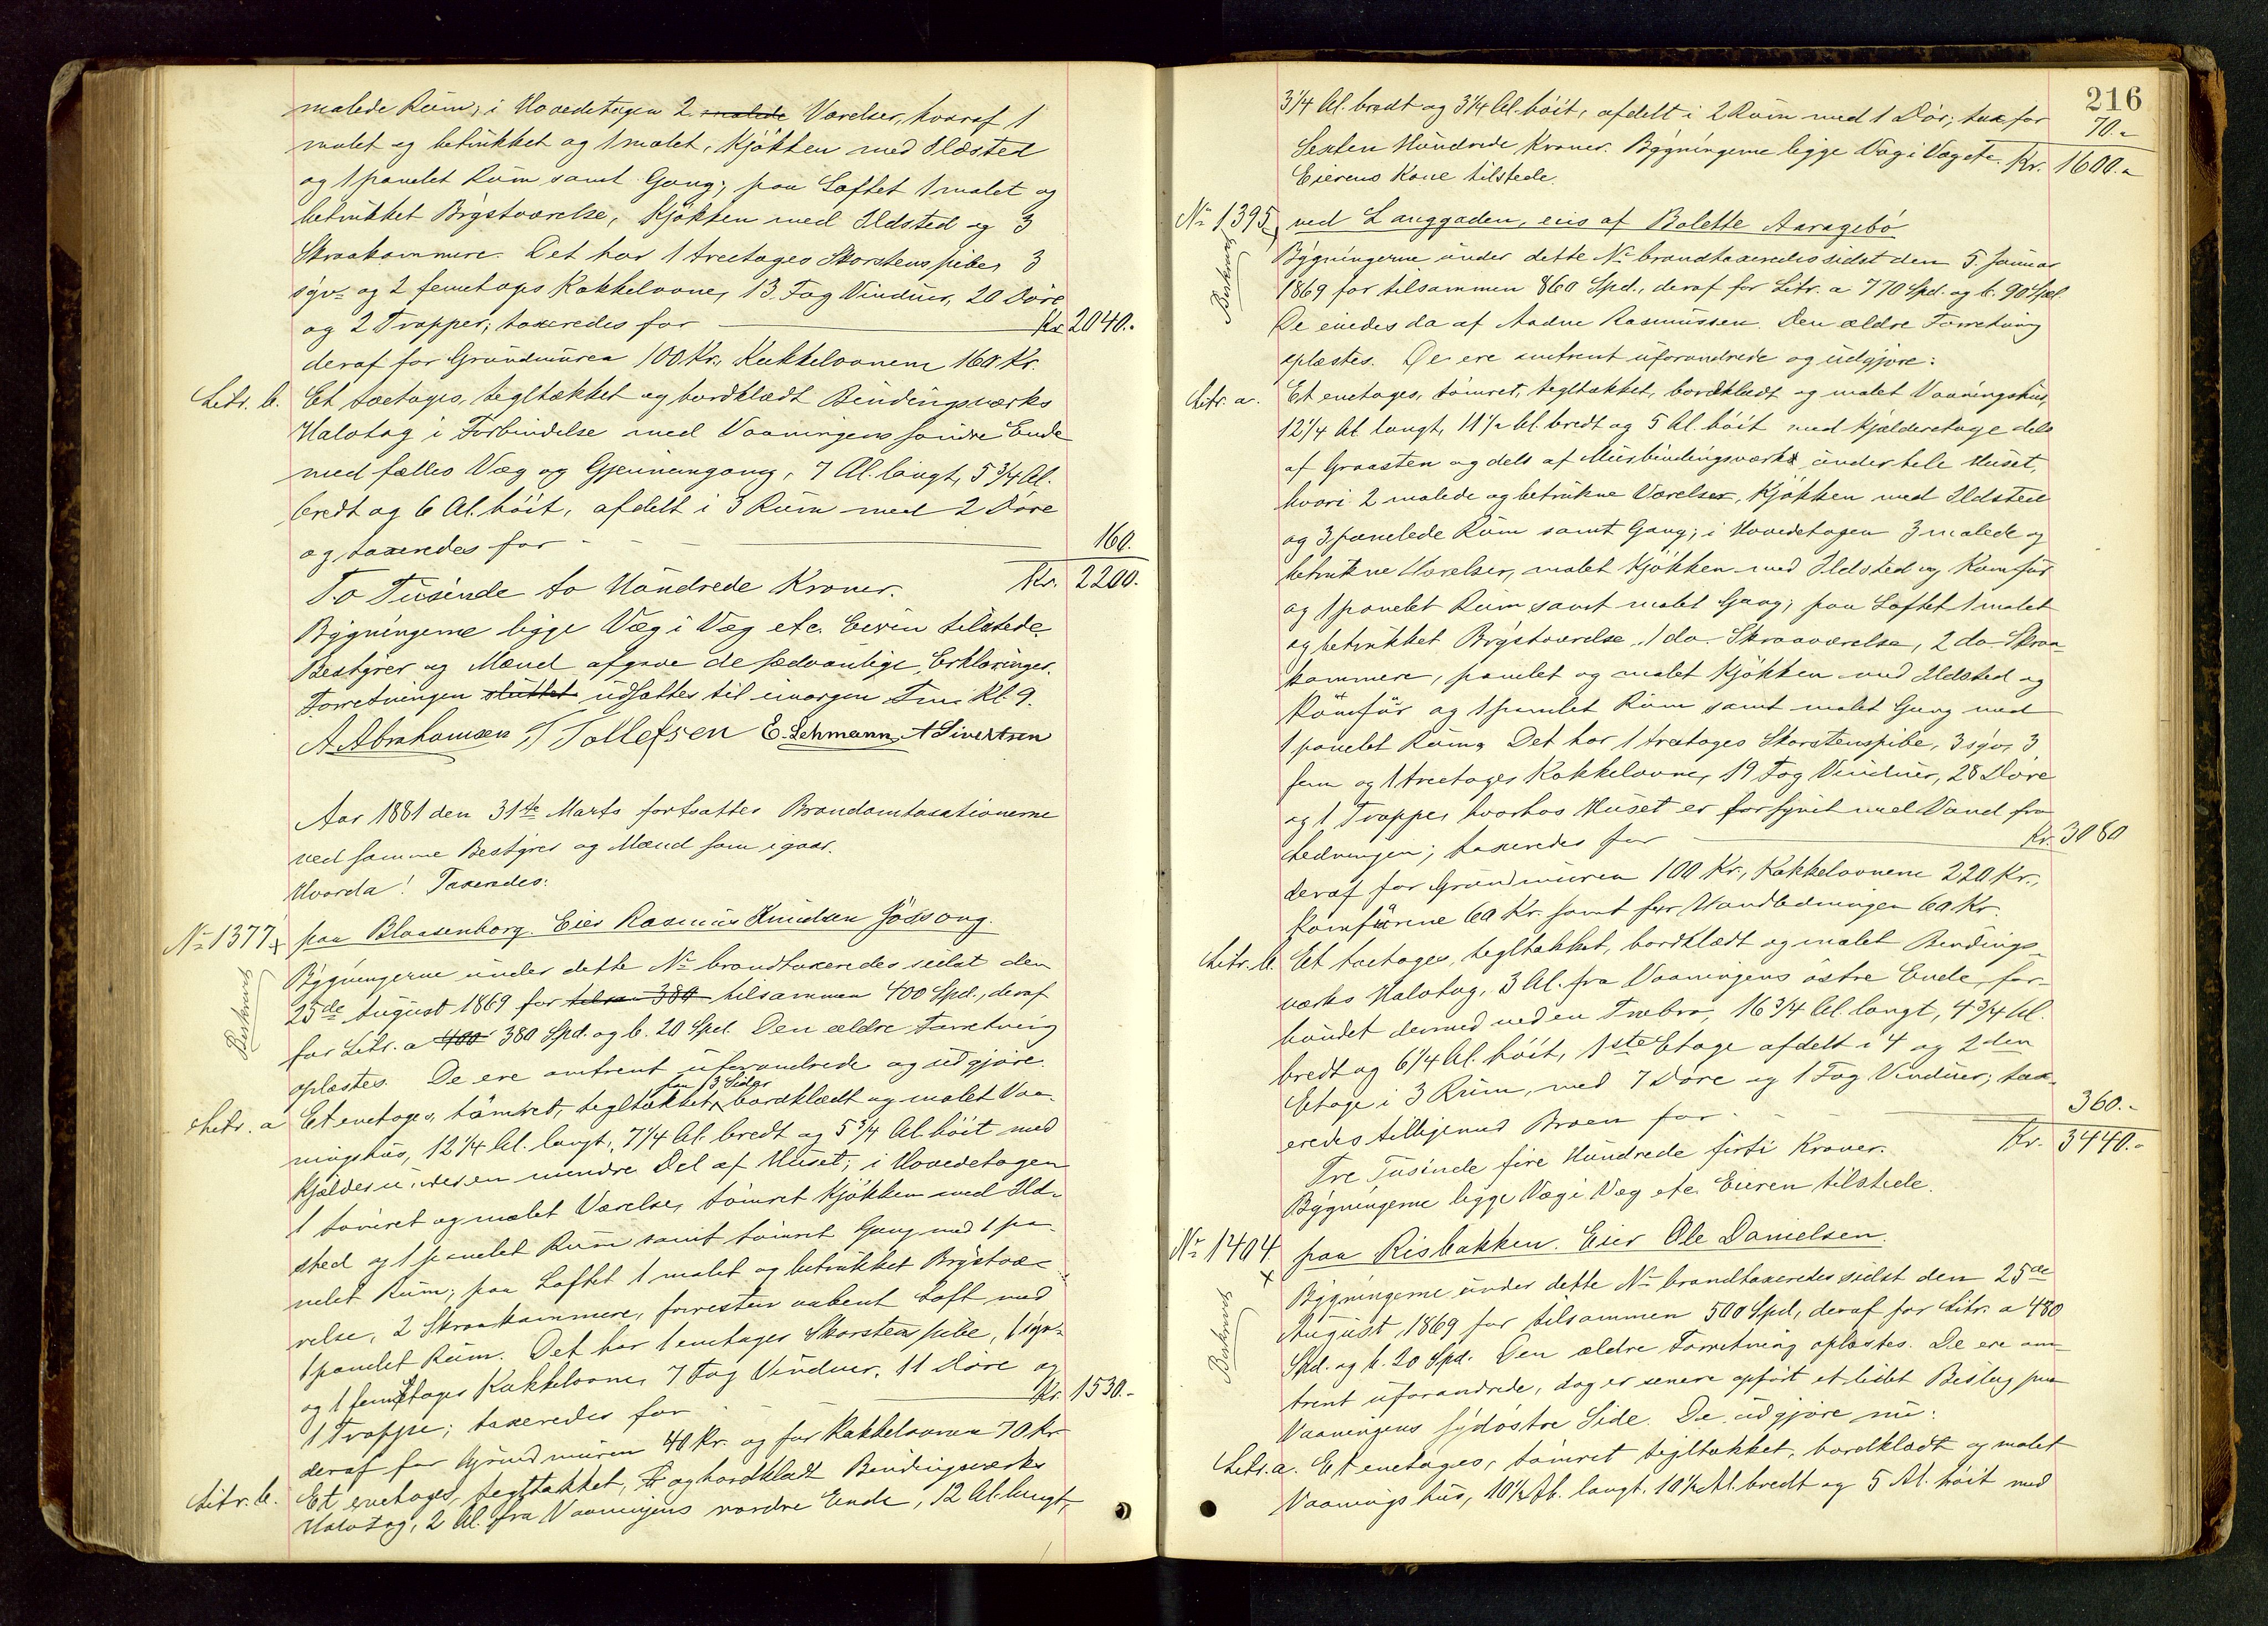 malede Rum; i Hovedetagen 2 malede Værelser, hvoraf 1
malet og betrukket og 1 malet, Kjøkken med Ildsted
og 1 panelet Rum samt Gang; paa Loftet 1 malet og
betrukket Brystværelse, Kjøkken med Ildsted og 3
Skraakammere. Det har 1 treetages Skorstenspibe, 3
syv- og 2 femetages Kakkelovne, 13 Fag Vinduer, 20 Døre
og 2 Trapper; taxeredes for Kr. 2040.-
deraf for Grundmuren 100 Kr., Kakkelovnene 160 Kr.
Litr. b. Et toetages, tegltækket og bordklædt Bindingsværks
Halvtag i Forbindelse med Vaaningens søndre Ende
med fælles Væg og Gjennemgang, 7 Al. langt, 5 3/4 Al.
bredt og 6 Al. høit, afdelt i 3 Rum med 2 Døre
og taxeredes for 160.
To Tusinde to Hundrede Kroner. Kr. 2200.
Bygningerne ligge Væg i Væg etc. Eieren tilstede.
Bestyrer og Mænd afgave de sædvanlige Erklæringer.
Forretningen sluttet udsattes til imorgen Fm. Kl. 9.
A. Abrahamsen T Tollefsen E. Lehmann, A Sivertsen
Aar 1881 den 31te Marts fortsattes Brandomtaxationerne
ved samme Bestyrer og Mænd som igaar.
Hvorda! Taxeredes:
No 1377 x paa Blaasenborg. Eier Rasmus Knudsen Jössang.
Beskrevet
Bygningerne under dette No brandtaxeredes sidst den
25de August 1869 for tilsam 380 tilsammen 400 Spd., deraf
for Litr. a 400 380 Spd. og b. 20 Spd. Den ældre Forretning
oplæstes. De ere omtrent uforandrede og udgjøre.
paa 3 Sider
Litr. a Et enetages, tømret, tegltækket, bordklædt og malet Vaa-
ningshus, 12 1/4 Al. langt, 7 1/4 Al. bredt og 5 3/4 Al. høit med
Kjelder under en mindre Del af Huset; i Hovedetagen
1 tømret og malet Værelse, tømret Kjøkken med Ild-
sted og 1 panelet Rum samt tømret Gang med 1 pa-
nelet Rum; paa Loftet 1 malet og betrukket Brystvæ-
relse, 2 Skraakammere, forresten aabent Loft med
1 panelet Rum. Det har 1 enetages Skorstenspibe, 1 syv-
og 1 femetages Kakkelovne, 7 Fag Vinduer, 11 Døre og
1 Trappe; taxeredes for Kr. 1530.-
deraf for Grundmuren 40 Kr. og for Kakkelovnen 70 Kr.
Litr. b. Et enetages, tegltækket, og bordklædt Bindingsværks
Halvtag, 2 Al. fra Vaaningens nordre Ende, 12 Al. langt,
216
3 1/4 Al. bredt og 3 1/4 Al. høit, afdelt i 2 Rum med 1 Dør; tax. for 70.-
Sexten Hundrede Kroner. Bygningerne ligge Væg i Væg etc. Kr. 1600.-
Eierens Kone tilstede.
No 1395 x ved Langgaden, eies af Bolette Aaragebö
Beskrevet
Bygningerne under dette No brandtaxeredes sidst den 5. Januar
1869 for tilsammen 860 Spd., deraf for Litr. a 770 Spd. og b. 90 Spd.
De eiedes da af Aadne Rasmussen. Den ældre Forretning
oplæstes. De ere omtrent uforandrede og udgjøre:
Litr. a. Et enetages, tømret, tegltækket, bordklædt og malet Vaaningshus,
12 1/4 Al. langt, 11 1/2 Al. bredt og 5 Al. høit med Kjælderetage dels
af Graasten og dels af Murbindingsværk under hele Huset,
hvori 2 malede og betrukne Værelser, Kjøkken med Ildsted
og 3 panelede Rum samt Gang; i Hovedetagen 3 malede og
betrukne Værelser, malet Kjøkken med Ildsted og Komfur
og 1 panelet Rum samt malet Gang; paa Loftet 1 malet
og betrukket Brystværelse, 1 do. Skraaværelse, 2 do. Skraa-
kammere, panelet og malet Kjøkken med Ildsted og
Komfur og 1 panelet Rum samt malet Gang med
1 panelet Rum. Det har 1 treetages Skorstenspibe, 3 syv, 3
fem og 1 treetages Kakkelovne, 19 Fag Vinduer, 28 Døre
og 1 Trappe, hvorhos Huset er forsynet med Vand fra
Ledningen; taxeredes for Kr. 3080
deraf for Grundmuren 100 Kr., Kakkelovnene 220 Kr.,
Komfurene 60 Kr. samt for Vandledningen 60 Kr.
Litr. b. Et toetages, tegltækket, bordklædt og malet Bindings-
værks Halvtag, 3 Al. fra Vaaningens østre Ende, for-
bundet dermed ved en Træbro, 16 3/4 Al. langt, 4 3/4 Al.
bredt og 6 1/4 Al. høit, 1ste Etage afdelt i 4 og 2den
Etage i 3 Rum, med 7 Døre og 1 Fag Vinduer; tax-
eredes tilligemed Broen for 360.-
Tre Tusinde fire Hundrede firti Kroner. Kr. 3440.-
Bygningerne ligge Væg i Væg etc. Eieren tilstede.
No 1404 x paa Risbakken. Eier Ole Danielsen.
Beskrevet
Bygningerne under dette No brandtaxeredes sidst den 25de
August 1869 for tilsammen 500 Spd., deraf for Litr. a 480
Spd. og b. 20 Spd. Den ældre Forretning oplæstes. De ere om-
trent uforandrede, dog er senere opført et lidet Bislag paa
Vaaningens sydøstre Side. De udgjøre nu:
Litr. a. Et enetages, tømret tegltækket, bordklædt og malet
Vaaningshus, 10 1/2 Al. langt, 10 1/2 Al. bredt og 5 Al. høit med